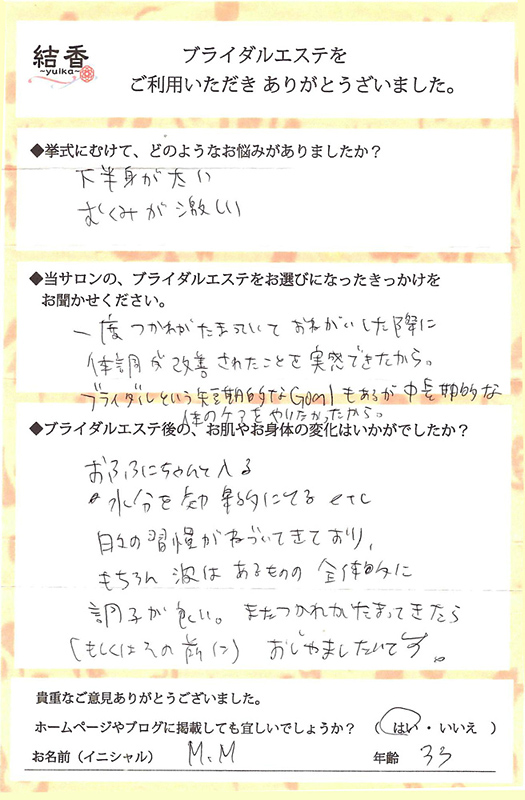 結香
~yuika~
ブライダルエステを
ご利用いただき ありがとうざいました。
◆挙式にむけて、どのようなお悩みがありましたか?
下半身が太い
むくみが激しい
◆当サロンの、ブライダルエステをお選びになったきっかけを
お聞かせください。
一度つかれがたまっていて おねがいした際に
体調が改善されたことを実感できたから。
ブライダルという短期的なGoalもあるが 中長期的な
体のケアをやりたかったから。
◆ブライダルエステ後の、お肌やお身体の変化はいかがでしたか?
おふろにちゃんと入る
水分を効果的にとる etc
日々の習慣がねづいてきており、
もちろん 波は あるものの 全体的に
調子が良い。 またつかれがたまってきたら
(もしくはその前に) おじゃましたいです。
貴重なご意見ありがとうございました。
ホームページやブログに掲載しても宜しいでしょうか? ( はい・いいえ )
お名前(イニシャル) M.M 年齢 33